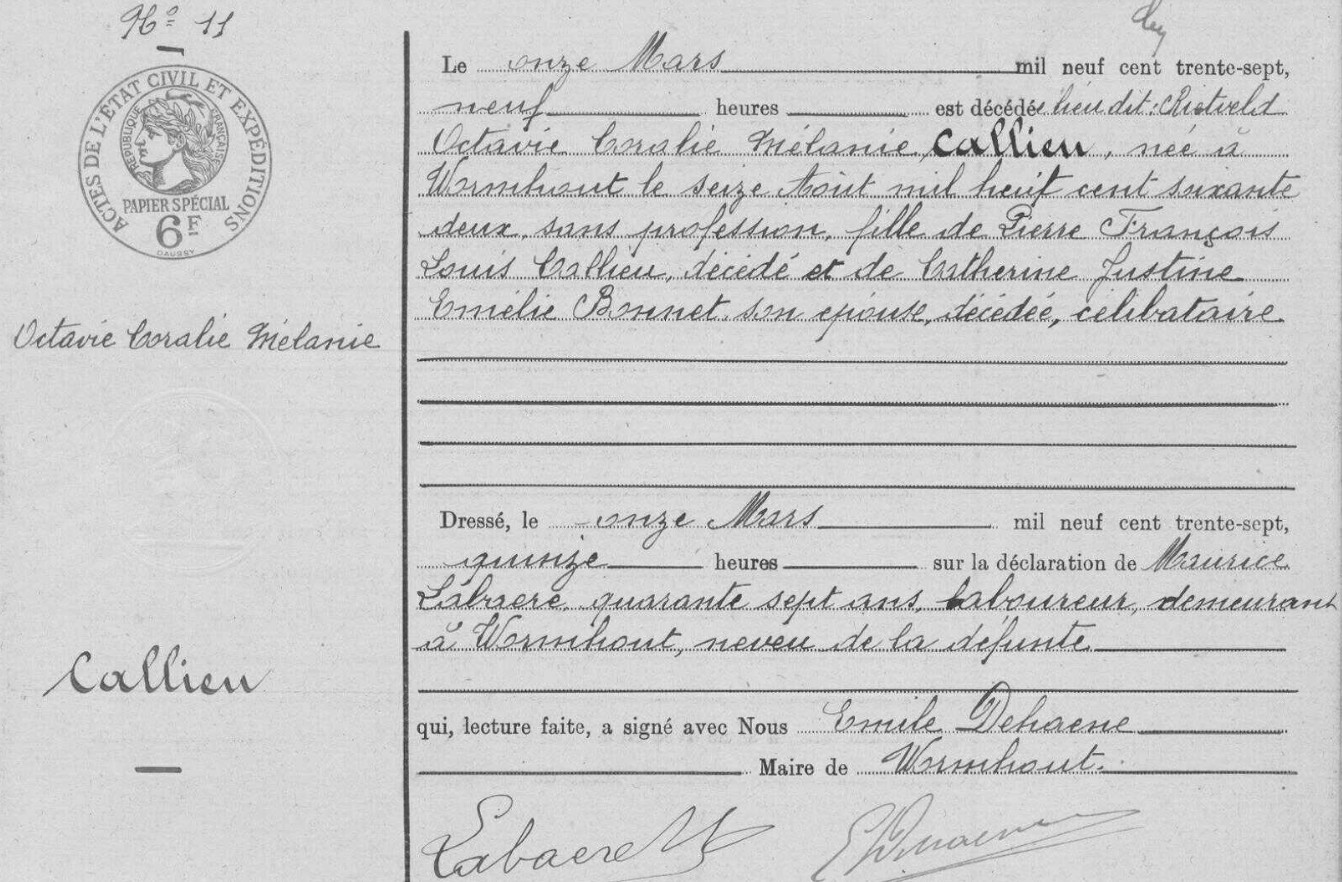 N° 11
ACTES DE L'ÉTAT CIVIL ET EXPÉDITIONS
RÉPUBLIQUE FRANÇAISE
PAPIER SPÉCIAL
6F
DAUSSY
Octavie Coralie Mélanie
Callieu
Le onze Mars mil neuf cent trente-sept,
neuf heures est décédée lieu dit:
Octavie Coralie Mélanie, Callieu, née à
Wormhout le seize Août mil heuf cent soixante
deux, sans profession, fille de Pierre François
Louis Callieu, décédé et de Catherine Justine
Emélie Bonnet son épouse, décédée, célibataire
Dressé, le onze Mars mil neuf cent trente-sept,
quinze heures sur la déclaration de Maurice
Labaere, quarante sept ans, laboureur, demeurant
à Wormhout, neveu de la défunte
qui, lecture faite, a signé avec Nous Emile Dehaene
Maire de Wormhout.
Labaere M